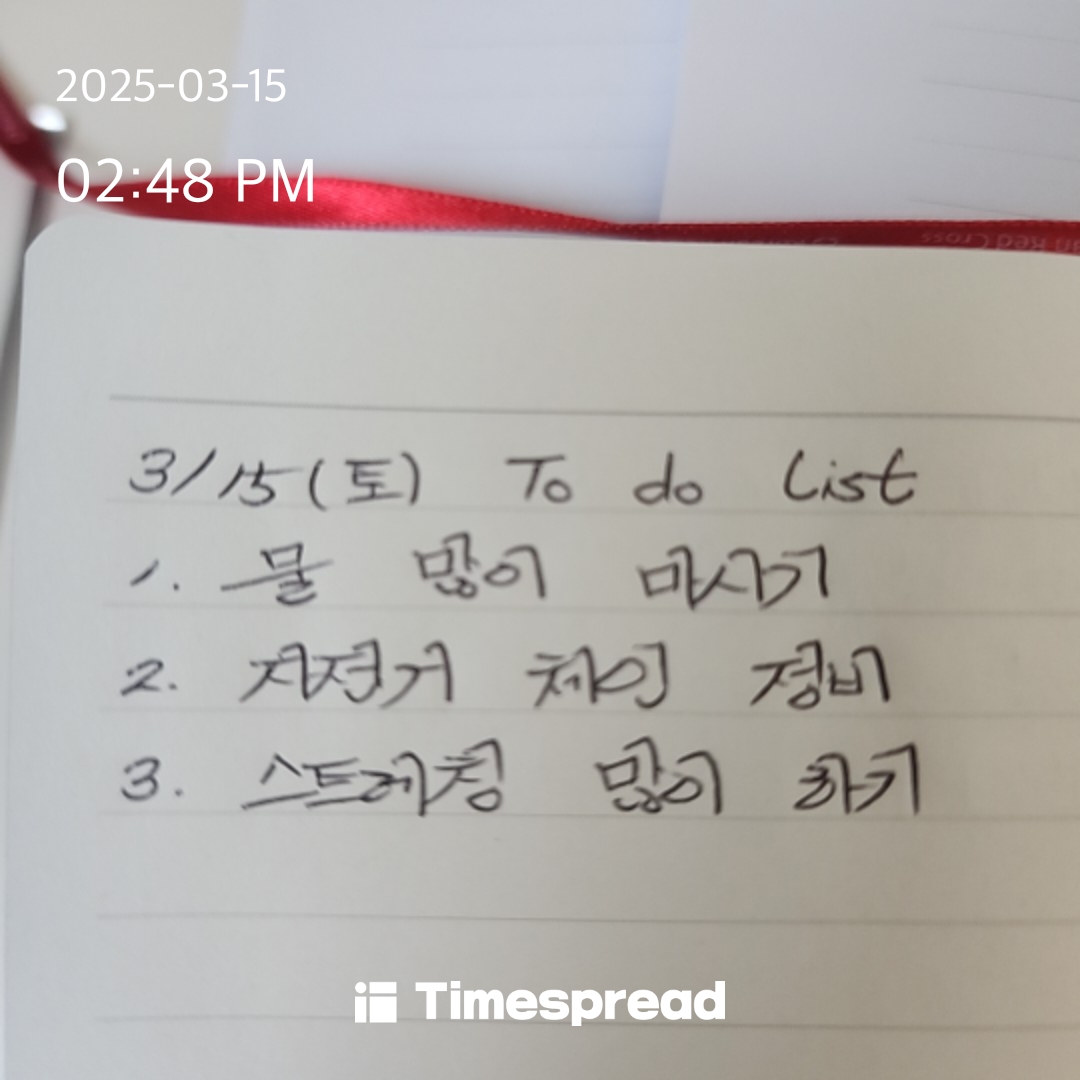 2025-03-15
02:48 PM
an Red Cross
3/15(토) To do List
1. 물 많이 마시기
2. 자전거 체인 정비
3. 스트레칭 많이 하기
Timespread